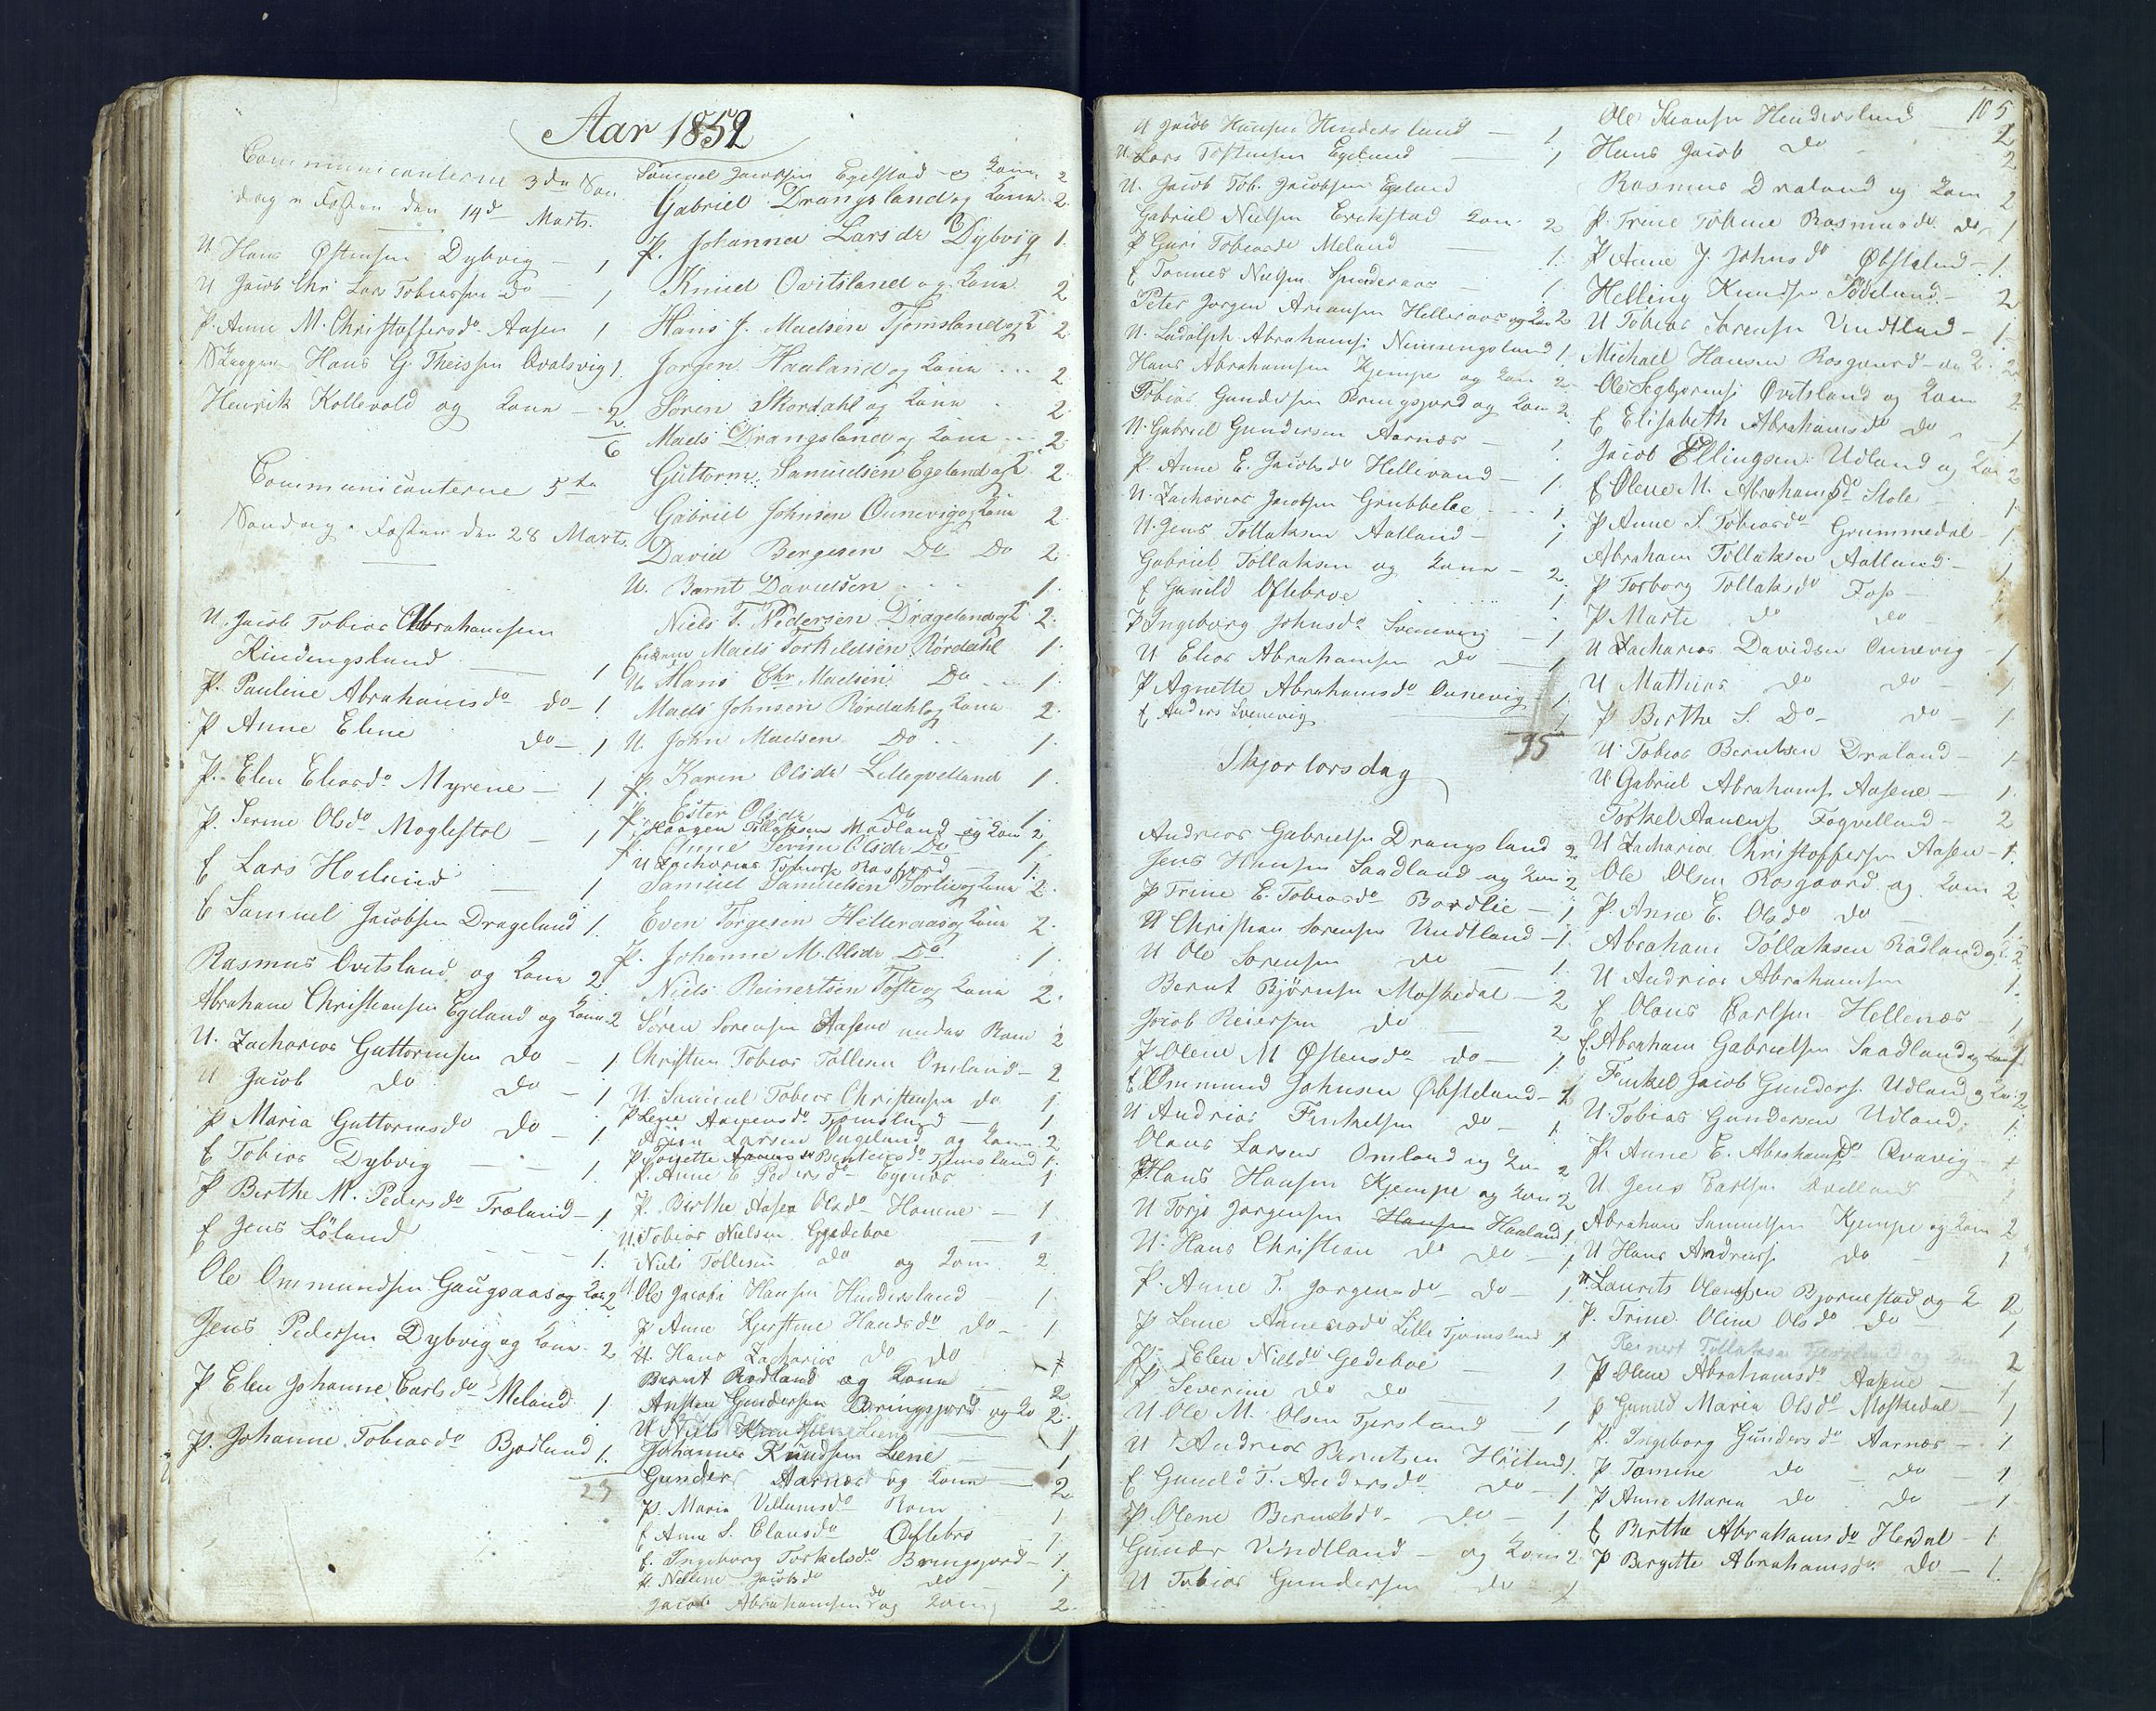 Aar 1852
Communicanterne 3de Søn
dag i Fasten den 14d Marts.
U Hans Østensen Dybvig — 1
U Jacob Chr Lar Tobiassen Do — 1
P. Anne M. Christoffersdo Aasen 1
Hans G Theissen Qvalsvig 1.
Henrik Kollevold og Kone — 2
6
Communicanterne 5te
Søndag i Fasten den 28 Marts.
U. Jacob Tobias Abrahamsen
Rindingsland — 1
P. Pauline Abrahamsdo do — 1
P Anne Eline do — 1
P. Elen Eliasdo Myrene — 1
P. Serine Olsdo Moglestol — 1
f Lars Hoiland — 1
f Samuel Jacobsen Drageland 1.
Rasmus Ovitsland og Kone 2
Abraham Christiansen Egeland og Kone 2
U. Zacharias Guttormsen do — 1
U Jacob do do — 1
P Maria Guttormsdo do — 1.
f Tobias Dybvig — 1.
P Berthe M. Pedersdo Træland — 1
f Jens Löland 1.
Ole Ommundsen Gaugsaas og Kone 2
Jens Pedersen Dybvig og Kone 2
P Elen Johanne Carlsdo Meland 1
P. Johanne Tobiasdo Bjodland 1.
Samuel Jacobsen Egelstad og Kone 2
Gabriel Drangsland og Kone 2.
P. Johanna Larsdr Dybvig 1.
Knud Ovitsland og Kone 2
Hans J. Madsen Tjomsland og K 2
Jorgen Haaland og Kone 2
Søren Skordahl og Kone 2
Mads Drangsland og Kone 2
Guttorm Samuelsen Egeland og K 2
Gabriel Johnsen Ounevig og Kone 2
David Bergesen Do Do 2
U. Bernt Davidsen 1.
Niels T. Pedersen Drageland og K 2.
Mads Torkildsen Rørdahl 1.
U. Hans Chr Madsen Do 1.
Mads Johnsen Rørdahl og Kone 2.
U. John Madsen Do 1.
P. Karen Olsdr Lillegvelland 1.
P. Ester Olsdr Do 1.
Haagen Tollaksen Madland og Kone 2
P. Anne Serine Olsdr Do 1.
U Zacharias Rosfjord 1.
Samuel Samuelsen Torlie og Kone 2.
Even Torgesen Helleraas og Kone 2.
P. Johanne M. Olsdr Do 1.
Niels Reinertsen Tofte og Kone 2.
Søren Sørensen Aasene uden Kone 2
Christen Tobias Tollisen Omland — 2
U. Samuel Tobias Christensen do 1
P Lene Aanensdo Tjomsland — 1
Larsen Ougeland og Kone 2
P. Anne E Pedersdo Egenes 1
P. Birthe Aasea Olsdo Homme — 1
U. Tobias Nielsen Gjedeboe 1
Niels Tollisen do og Kone 2
U Ole Jacobs Hansen Hindersland 1.
P Anne Kjerstine Hansdo do — 1
U. Hans Zacharias do do 1
Bernt Rodland og Kone 2
Aasten Gundersen Bringsjord og Ko 2.
U Niels Knudsen Liene 1
Johannes Knudsen Liene 1
Gunder Aarnæs og Kone — 2
P. Maria Villumsdo Rom 1
f Anne S. Clausdo Oftebro 1
f. Ingeborg Torkelsdo Bringsjord — 1.
P. Nelline Jacobsdo do — 1
Jacob Abrahamsen do og Kone 2.
U Jacob Hansen Hindersland — 1
U. Lars Tostensen Egeland — 1
U. Jacob Tob. Jacobsen Egeland
Gabriel Nielsen Erikstad Kone 2
P Guri Tobiasdo Meland 1.
f Tonnes Nielsen 1.
Peter Jorgen Arensen Helleraas og Kone 2
U. Ludolph Abrahams: Nimingsland 1.
Hans Abrahamsen Kjempe og Kone 2
Tobias Gundersen Bringsjord og Kone 2.
U. Gabriel Gundersen Aarnæs — 1.
P. Anne E. Jacobsdo Hellevand — 1.
U. Zacharias Jacobsen Grubbelæ 1
U. Jens Tollaksen Aatland — 1
Gabriel Tollaksen og Kone — 2.
f Gunild Oftebroe 1
P Ingeborg Johnsdo Svenevig — 1
U Elias Abrahamsen do — 1
P Agnette Abrahamsdo Ounevig 1.
f Anders Svenevig 1
95
Skjærtorsdag
Andreas Gabrielsen Drangsland 2
Jens Hansen Saadland og Kone 2
P Trine E. Tobiasdo Bordlie — 1
U Christian Sorensen Vindtland — 1.
U Ole Sorensen do — 1.
Bernt Bjørnsen Moskedal — 2
Jacob Reiersen do — 2
P Olene M Østensdo do — 1.
f Ommund Johnsen Øbsteland — 1
U Andrias Finkelsen do — 1
Olaus Larsen Omland og Kone 2
Hans Hansen Kjempe og Kone 2
U Torjo Jorgensen Hansen Haaland 1.
U. Hans Christian do do — 1
P. Anne T. Jorgensdo do — 1
P Lene Aanensdo Lille Tjomsland 1
P. Elen Nielsdo Gedeboe 1
P Severine do do 1
U Ole M. Olsen Tjersland 1
U Andrias Berntsen Höiland 1.
f Gunild T. Andersdo do — 1
P Olene Berntsdo do — 1.
Gunder Vindtland — og Kone 2.
U Tobias Gundersen do 1
105
Ole Hansen Hindersland 2
Hans Jacob do 2
Rasmus Draland og Kone 2
P. Trine Tobine Rasmusdo do 1
P Anne J. Johnsdo Øbsteland — 1.
Helling Knudsen — 2
U Tobias Sorensen Vindtland — 1.
Michael Hansen Rosgaard — og K. 2
Ole Segbjørns: Ovitsland og Kone 2
f Elisabeth Abrahamsdo do — 1
Jacob Ellingsen Udland og Kone 2
f Olene M. Abrahamsdo Stole — 1
P Anne S. Tobiasdo Grummedal — 1
Abraham Tollaksen Aatland — 1
P Torborg Tollaksdo Foss — 1
P Marte do do 1
U Zacharias Davidsen Ounevig — 1
U Mathias do do — 1
P Birthe S. Do do — 1.
U. Tobias Berntsen Draland — 1
U Gabriel Abrahams Aasene — 1.
Torkel Aanens Fogvelland — 2
U Zacharias Christoffersen Aasen — 1.
Ole Olsen Rosgaard og Kone 2
P. Anne E. Olsdo do 1.
Abraham Tollaksen Rödland og K 2
U Andrias Abrahamsen 1.
f Olaus Carlsen Hellenæs — 1
f. Abraham Gabrielsen Saadland og Kone
Finkel Jacob Gunders. Udland og Kone 2
U. Tobias Gundersen Udland 1.
P. Anne E. Abrahamsdo Qvavig — 1
U Jens Carlsen 1
Abraham Samuelsen Kjempe og Kone 2
U Hans Andreass: do — 1
U Laurits Olaussen Bjornestad og K 2
P. Trine Oline Olsdo do — 1
Reinert Tollaksen og Kone 2
P Oline Abrahamsdo Aasene — 1
P Gunild Maria Olsdo Moskedal — 1
P. Ingeborg Gundersdo Aarnæs — 1
P Tomine do do 1
P Anne Maria do do — 1
f Birthe Abrahamsdo Herdal — 1
P Birgitte Abrahamsdo do — 1.